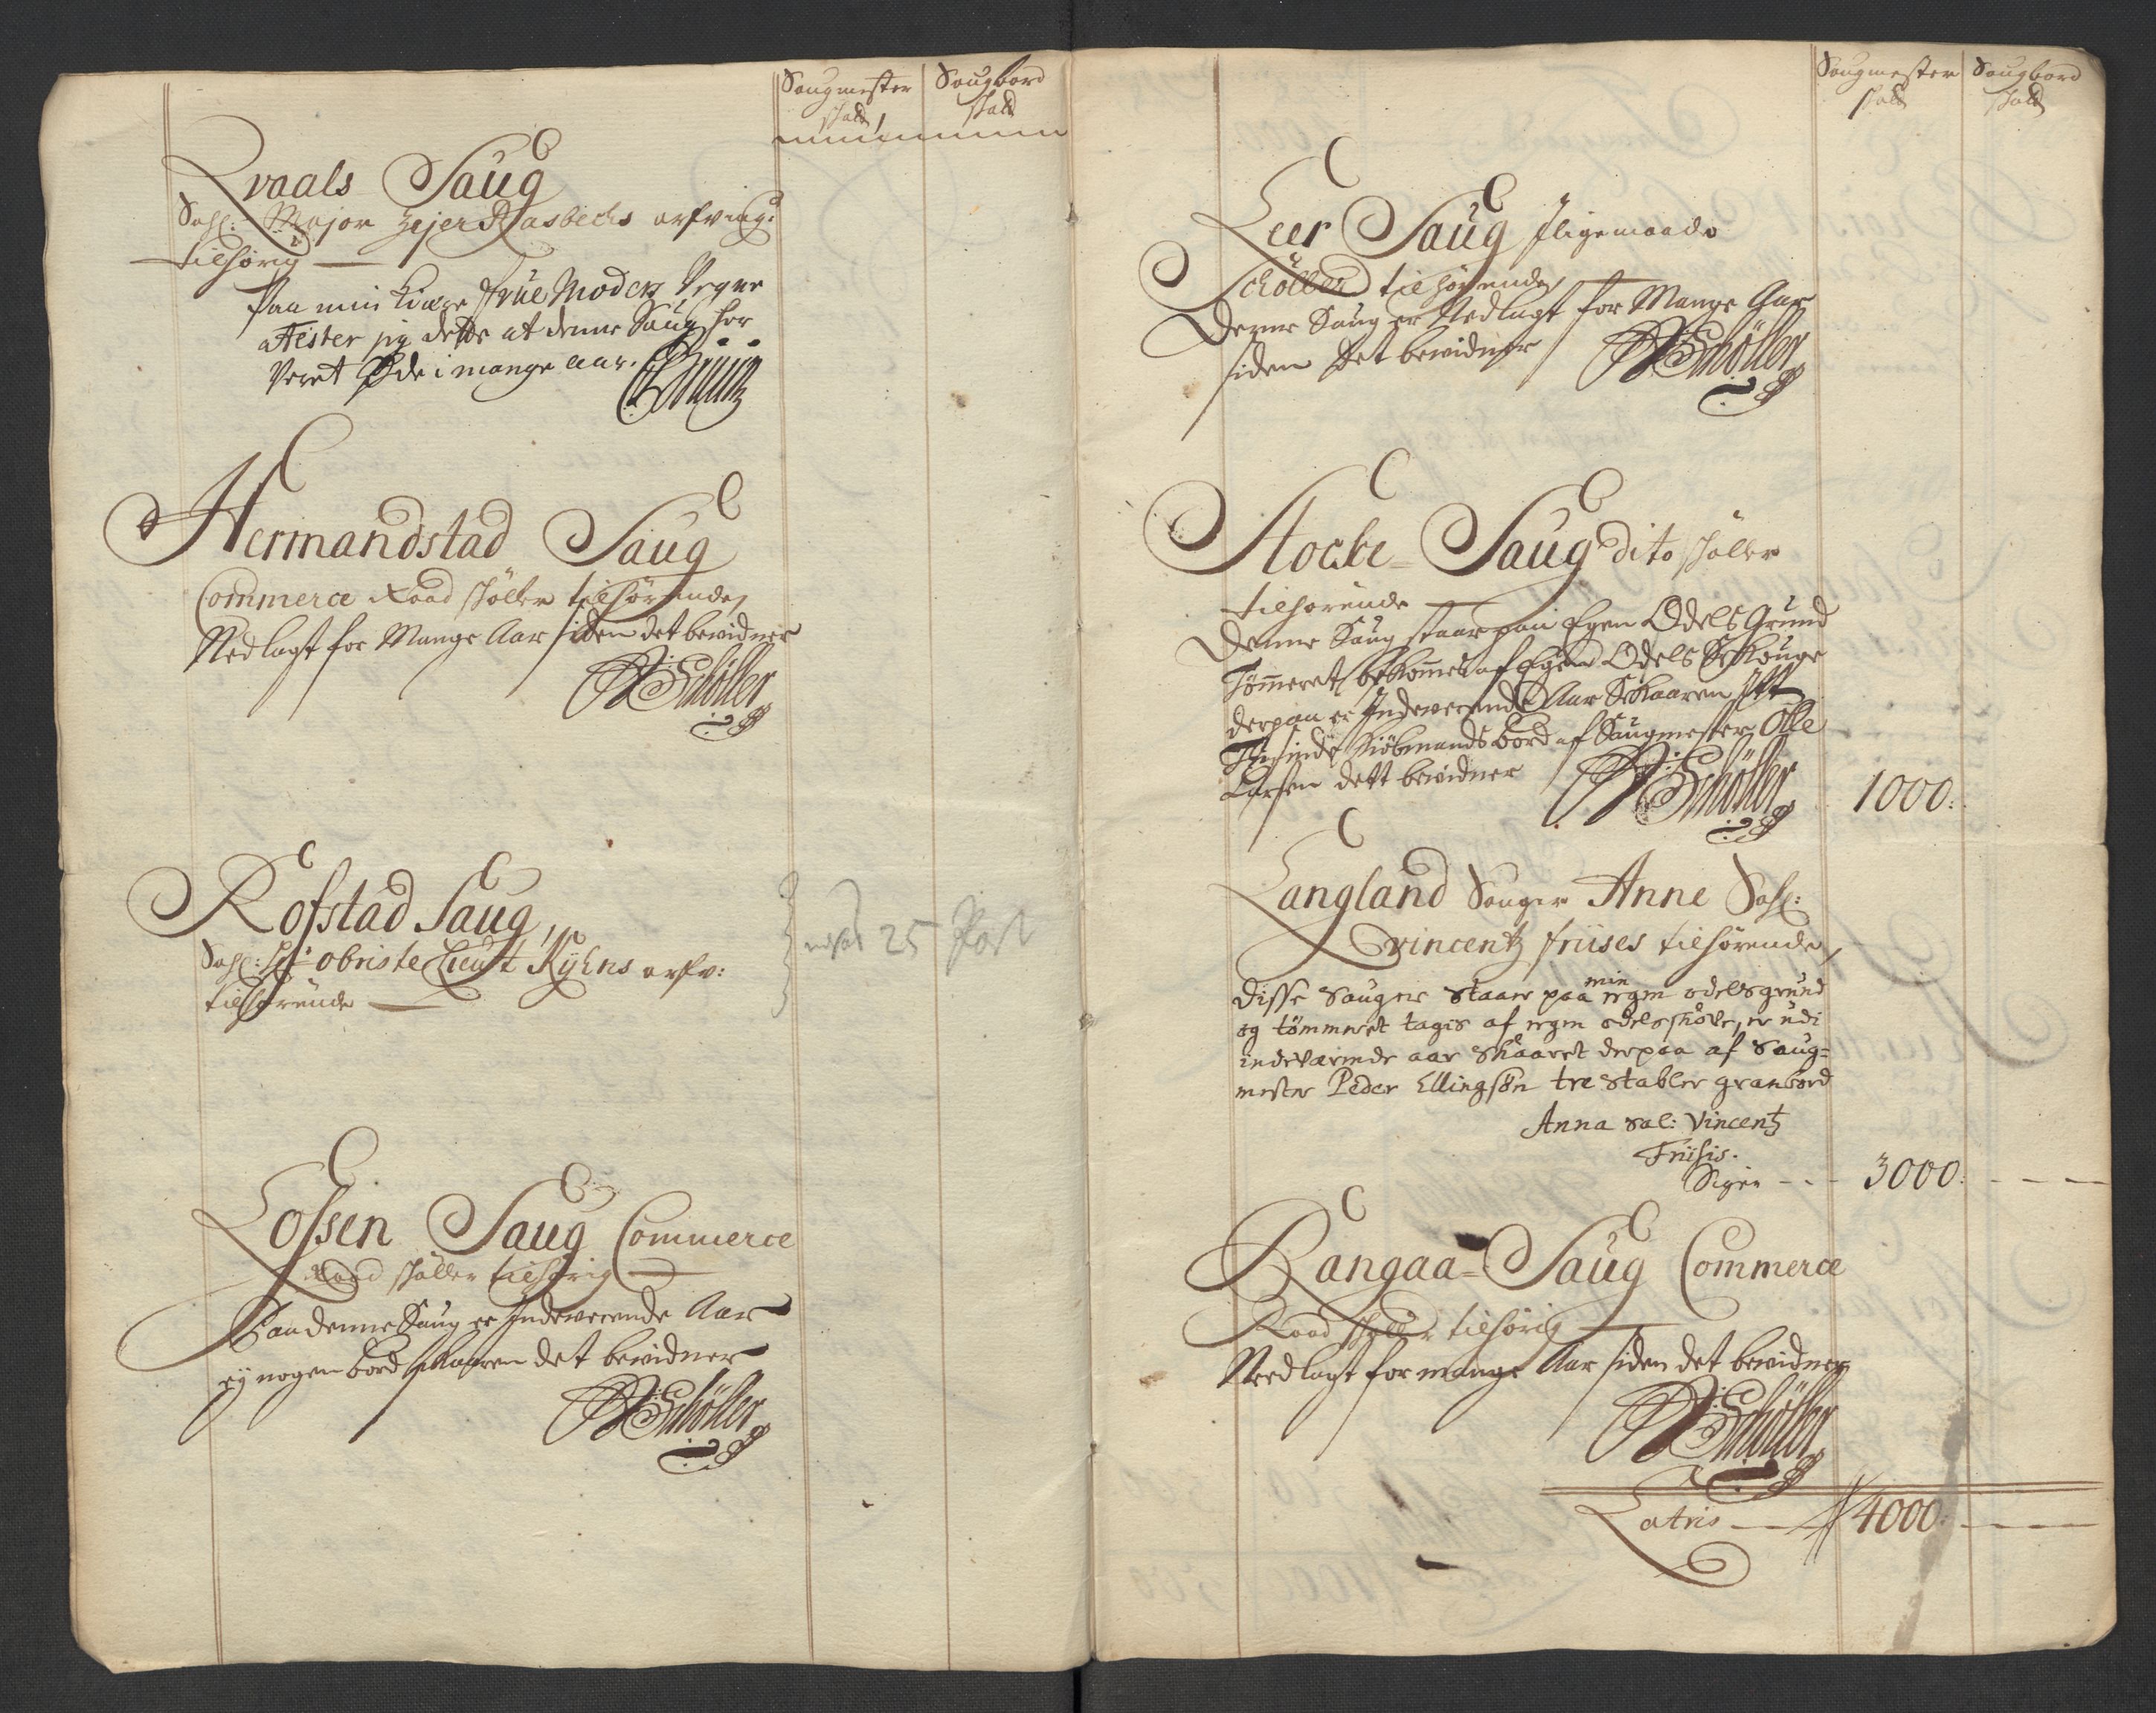 Saugmester
skatt
Saugbord
skatt
Qvaals Saug
Sahl: Major Ejler Rasbechs arfving:
tilhørig
Paa min Kiære frue Moders Vegne
Atester jeg dette at denne Saug har
Veret Øde i mange aar.
Hermandstad Saug
Commerce Raad skøller tilhørende,
Nedlagt for Mange Aar siden det bevidner
Schøller
Rofstad Saug,
Sahl: Hr obriste Lieut Kyhns arfv:
tilhørende
25 Post
Lossen Saug Commerce
Raad skøller tilhørig
Paa denne Saug er Indeverende Aar
ej nogen bord skaaren det bevidner
Schøller
Saugmester
skatt
Saugbord
skatt
Leer Saug Iligemaade
Schøller tilhørende,
Denne Saug er Nedlagt for Mange Aar
siden Det bevidner
Schøller
Stocke-Saug dito skøller
tilhørende
Denne Saug staar paa Egen Odels Grund
Tømmeret bekommes af Egen Odels Schouge
derpaa er Indeverende Aar Schaaren Itt
Tusinde Kiøbmands bord af Saugmester Olle
Larsen dett bevidner
Schøller
1000:
Langland Sauger Anne Sahl:
vincentz friises tilhørende,
Disse Sauger Staar paa min egen odels grund
og tømmeret tagis af egen odels skove, er udi
indeværende aar skaaret derpaa af Saug=
mester Peder Ellingsøn tre stabler granbord
Anna Sal: Vincentz
Friisis.
3000:
Rangaa-Saug Commerce
Raad skøller tilhørig
Nedlagt for mange Aar siden det bevidner
Schøller
Latris 4000: